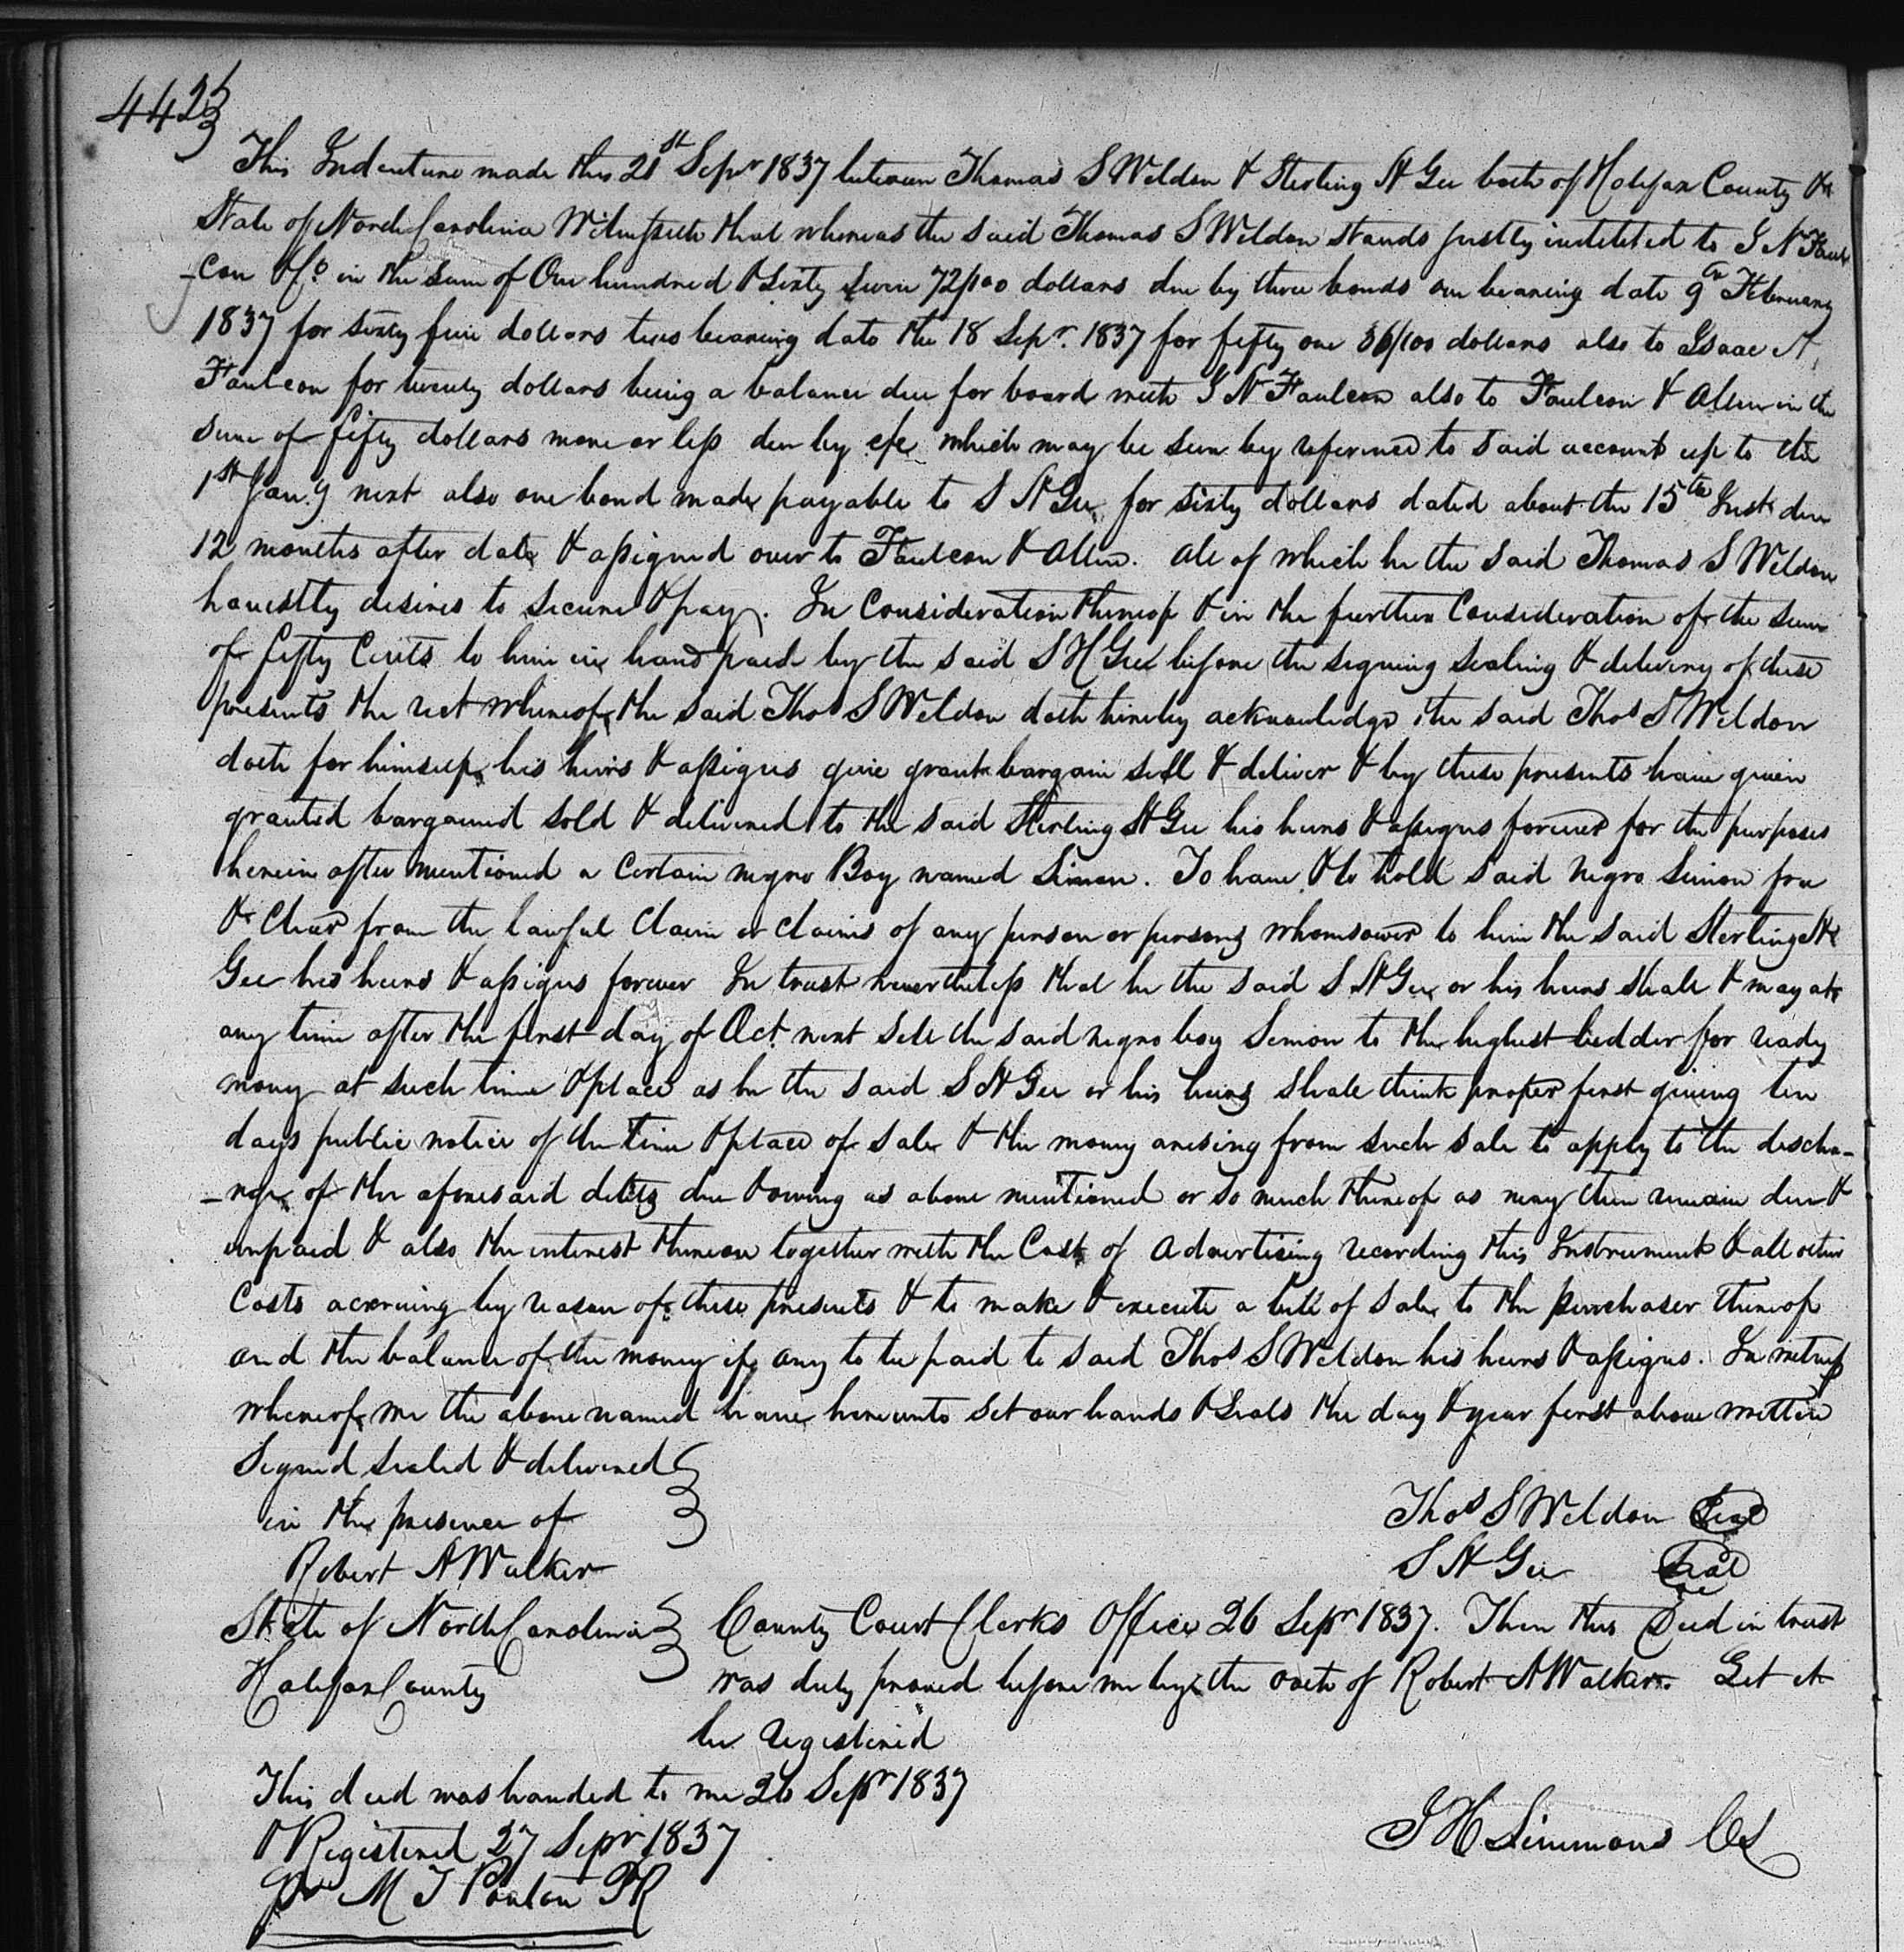 442
This Indenture made this 21st Sepr 1837 between Thomas S Weldon & Sterling H Gee both of Halifax County &
State of North Carolina Witnesseth that whereas the said Thomas S Weldon stands justly indebted to I N Faul-
-con & Co in the sum of One hundred & Sixty seven 72/100 dollars due by three bonds one bearing date 9th February
1837 for sixty five dollars two bearing date the 18 Sepr. 1837 for fifty one 36/100 dollars also to Isaac N.
Faulcon for twenty dollars being a balance due for board with I N Faulcon also to Faulcon & Allen in the
sum of fifty dollars more or less due by a/c which may be seen by reference to said account up to the
1st Jan.y next also one bond made payable to S H Gee for sixty dollars dated about the 15th Inst due
12 months after date & assigned over to Faulcon & Allen. all of which he the said Thomas S Weldon
honestly desires to secure & pay. In Consideration thereof & in the further Consideration of the sum
of fifty Cents to him in hand paid by the said S H Gee before the signing sealing & delivery of these
presents the rect whereof the said Thos S Weldon doth hereby acknowledge, the said Thos S Weldon
doth for himself his heirs & assigns give grant bargain sell & deliver & by these presents have given
granted bargained sold & delivered to the said Sterling H Gee his heirs & assigns forever for the purposes
herein after mentioned a Certain negro Boy named Simon. To have & to hold said negro Simon free
& Clear from the lawful Claim or Claims of any person or persons whomsoever to him the said Sterling H
Gee his heirs & assigns forever In trust nevertheless that he the said S H Gee or his heirs shall & may at
any time after the first day of Oct. next sell the said negro boy Simon to the highest bidder for ready
money at such time & place as he the said S H Gee or his heirs shall think proper first giving ten
days public notice of the time & place of sale & the money arising from such sale to apply to the discha-
-rge of the aforesaid debts due & owing as above mentioned or so much thereof as may then remain due &
unpaid & also the interest thereon together with the Cost of Advertising recording this Instrument & all other
Costs accruing by reason of these presents & to make & execute a bill of sale to the purchaser thereof
and the balance of the money if any to be paid to said Thos S Weldon his heirs & assigns. In witness
whereof we the above named have hereunto set our hands & Seals the day & year first above written
Signed sealed & delivered
in the presence of Thos S Weldon Seal
Robert A Walker S H Gee Seal
State of North Carolina County Court Clerks Office 26 Sepr 1837. Then this Deed in trust
Halifax County was duly proved before me by the oath of Robert A Walker. Let it
be registered
This deed was handed to me 26 Sepr 1837
& Registered 27 Sepr 1837 J H Simmons Clk
Pr M T Ponton PR